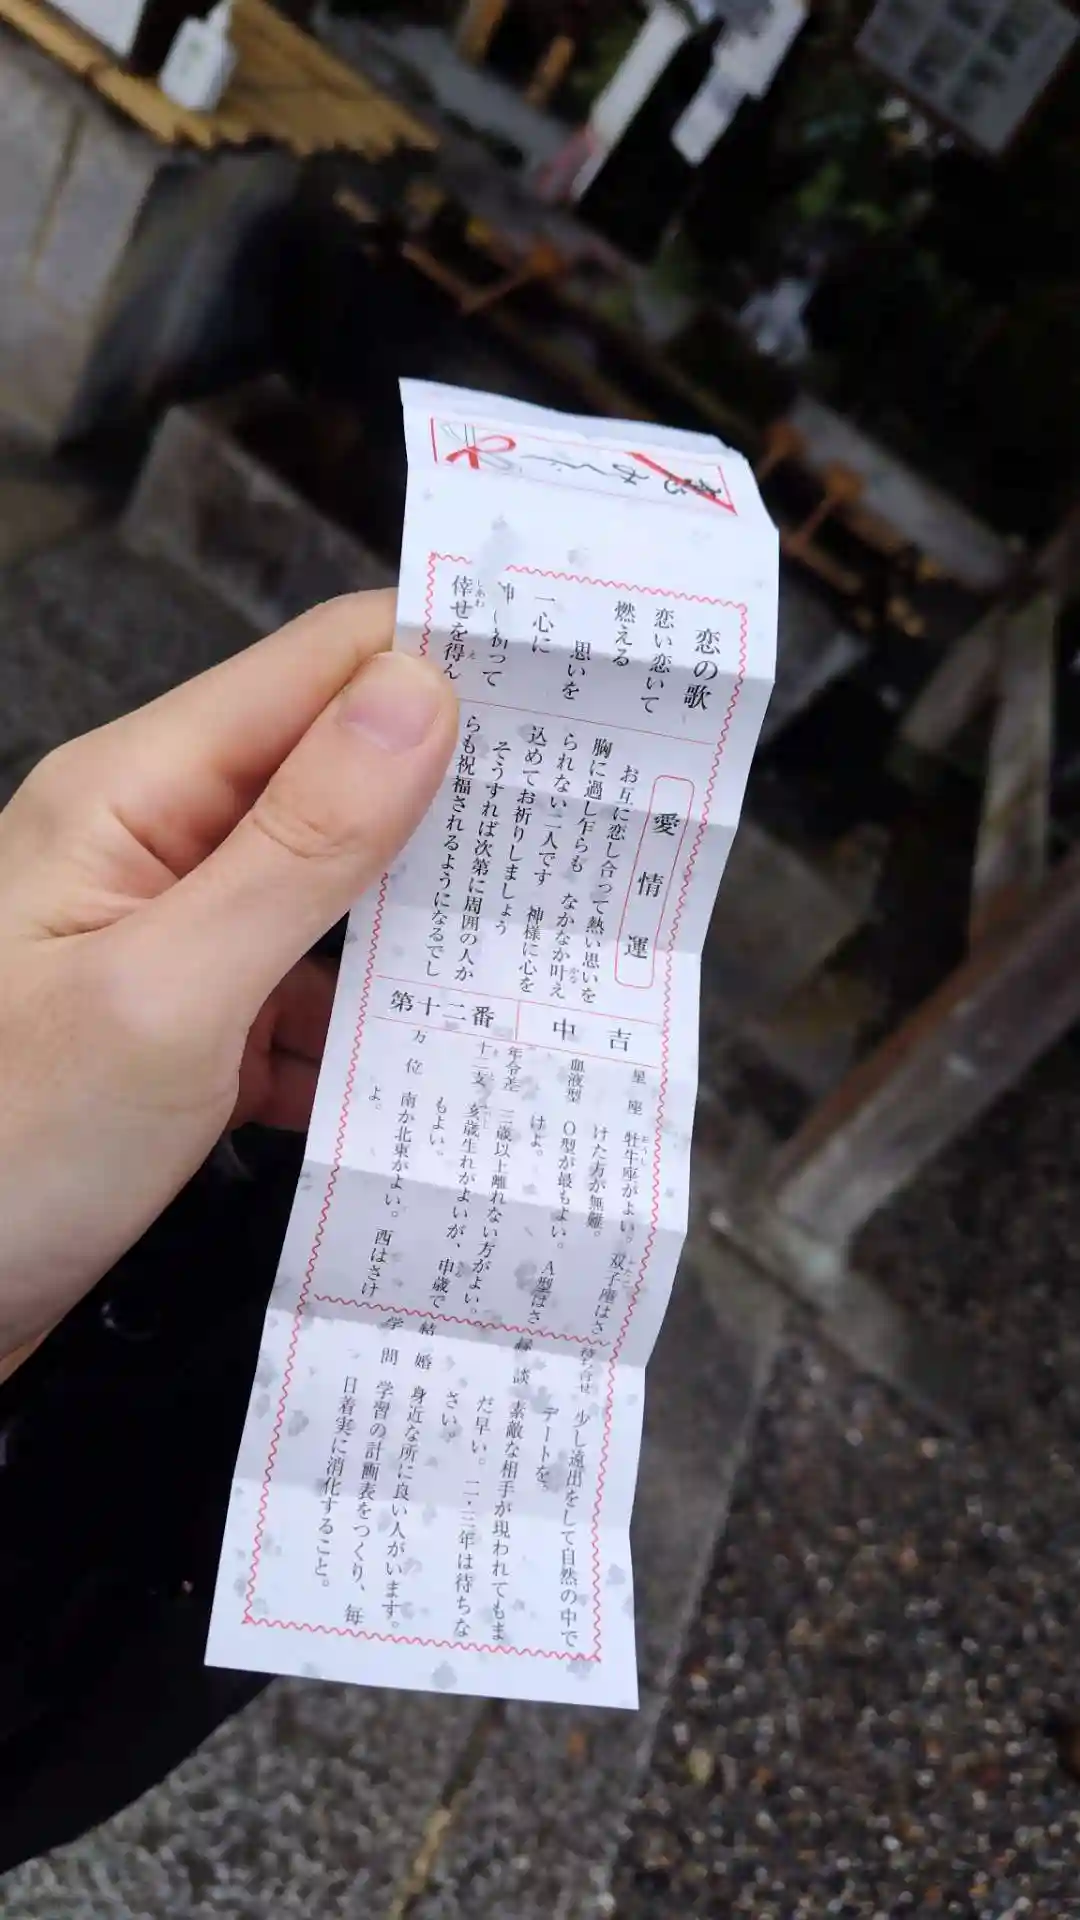 みくじ
恋の歌
恋い恋いて
燃える
思いを
一心に
祈って
倖せを得ん
愛情運
お互に恋し合って熱い思いを
胸に過し乍らも なかなか叶え
られない二人です 神様に心を
込めてお祈りしましょう
そうすれば次第に周囲の人か
らも祝福されるようになるでし
中吉
第十二番
星座 牡牛座がよい。双子座はさ
けた方が無難。
血液型 O型が最もよい。A型はさ
けよ。
年令差 三歳以上離れない方がよい。
十二支 亥歳生れがよいが、申歳で
もよい。
方位 南か北東がよい。西はさけ
よ。
待ち合せ 少し遠出をして自然の中で
デートを。
縁談 素敵な相手が現われてもま
だ早い。二・三年は待ちな
さい。
結婚 身近な所に良い人がいます。
学問 学習の計画表をつくり、毎
日着実に消化すること。